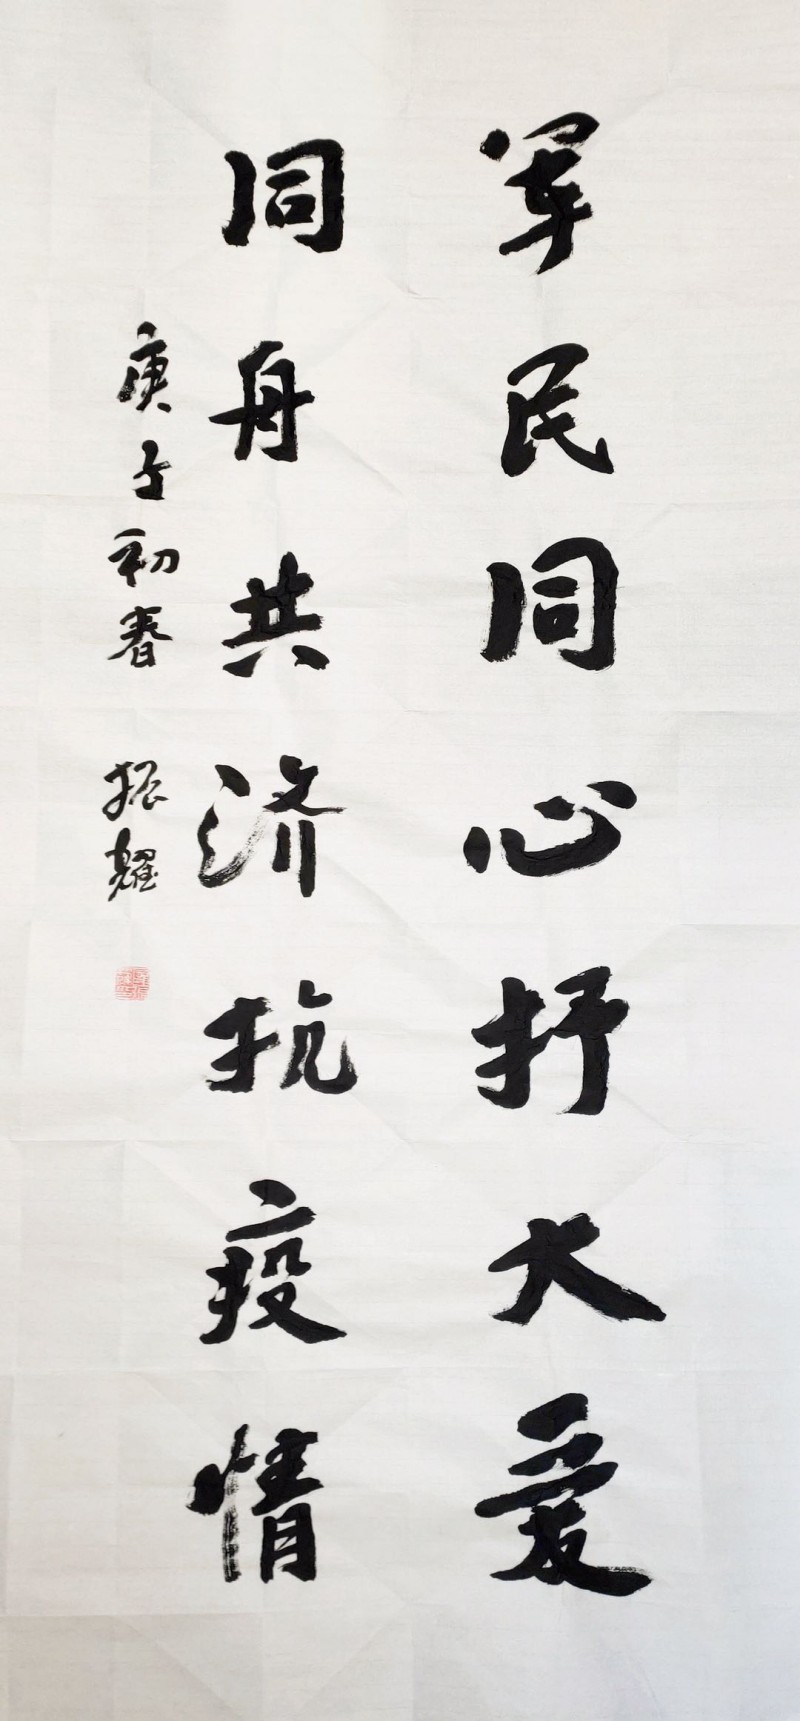 军民同心抒大爱
同舟共济抗疫情
庚子初春 振耀